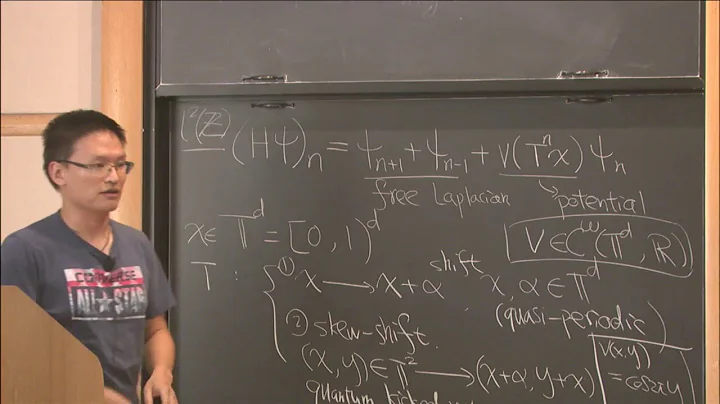 l²(ℤ) (HΨ)ₙ = Ψₙ₊₁ + Ψₙ₋₁ + V(Tⁿx) Ψₙ
free Laplacian potential
x ∈ 𝕋ᵈ = [0, 1)ᵈ V ∈ Cʷ(𝕋ᵈ, ℝ)
T : ① x ⟶ x + α shift x, α ∈ 𝕋ᵈ
(quasi-periodic)
② skew-shift. V(x,y)
(x, y) ∈ 𝕋² ⟶ (x+α, y+x) = cos2πy
quantum kicked
CONVERSE
ALL★STAR